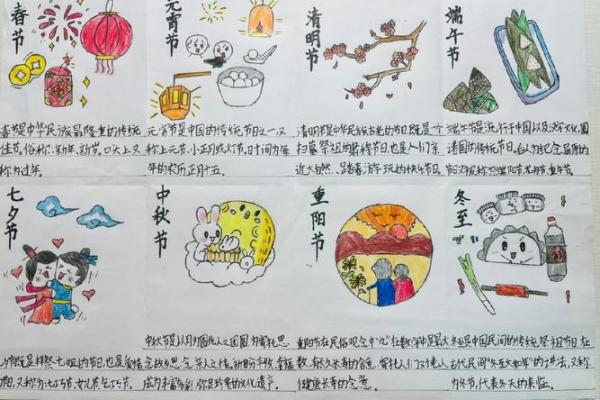 春节
元宵节
清明节
端午节
春节是中华民族最隆重的传统
佳节。俗称:新年、新岁。口头上又
称为过年。
元宵节是中国的传统节日之一又
称上元节、小正月或灯节。时间为每
年的农历正月十五。
清明节是中华民族古老的节日既是一个
扫墓祭祖的肃穆节日,也是人们亲
近大自然、踏青春游
端午节是流行于中国以及汉字文化圈
诸国的传统节日。
七夕节
中秋节
重阳节
冬至
也是爱情
又称为七巧节、女儿节乞巧节。
中秋节是以月之圆兆人之团圆为寄托思
念故乡思念亲人之情,祈盼丰收、幸福
成为丰富多彩、弥足珍贵的文化遗产。
重阳节在民俗观念中"九"在数字中是最大
数,有久长寿的含意,寄托人们对老人
健康长寿的
冬至是中国民间的传统祭祖节日,在
古代民间"冬至大如年"的讲法,又称
为冬节,代表冬天的来临。